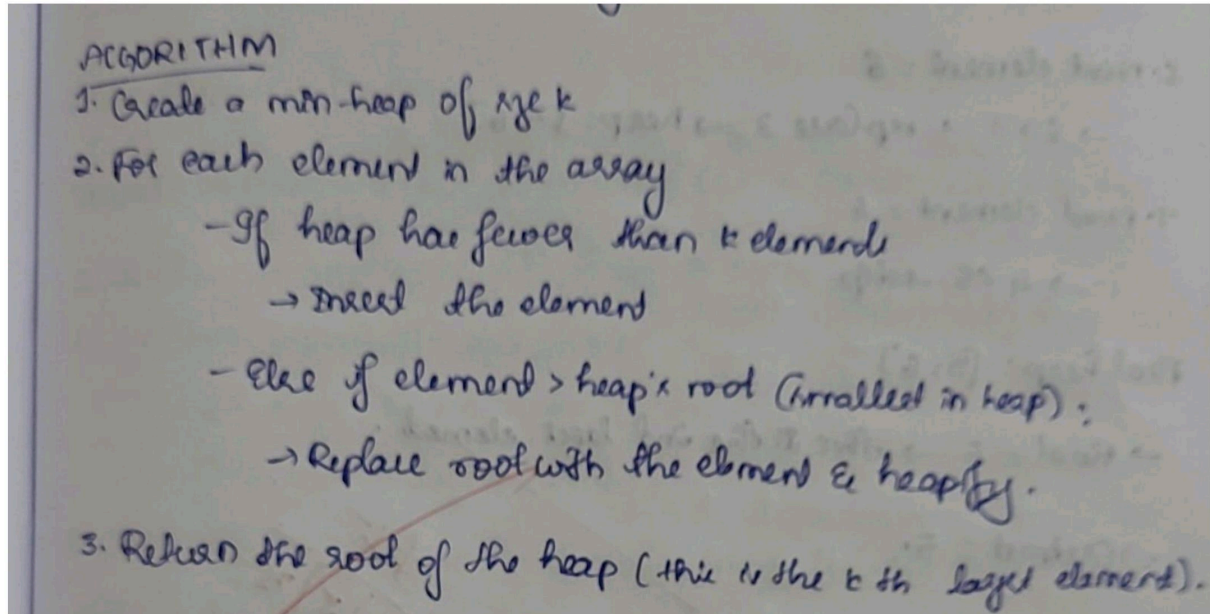 ALGORITHM
1. Create a min-heap of size k
2. For each element in the array
- If heap has fewer than k elements
→ Insert the element
- Else if element > heap's root (smallest in heap):
→ Replace root with the element & heapify.
3. Return the root of the heap (this is the k th largest element).